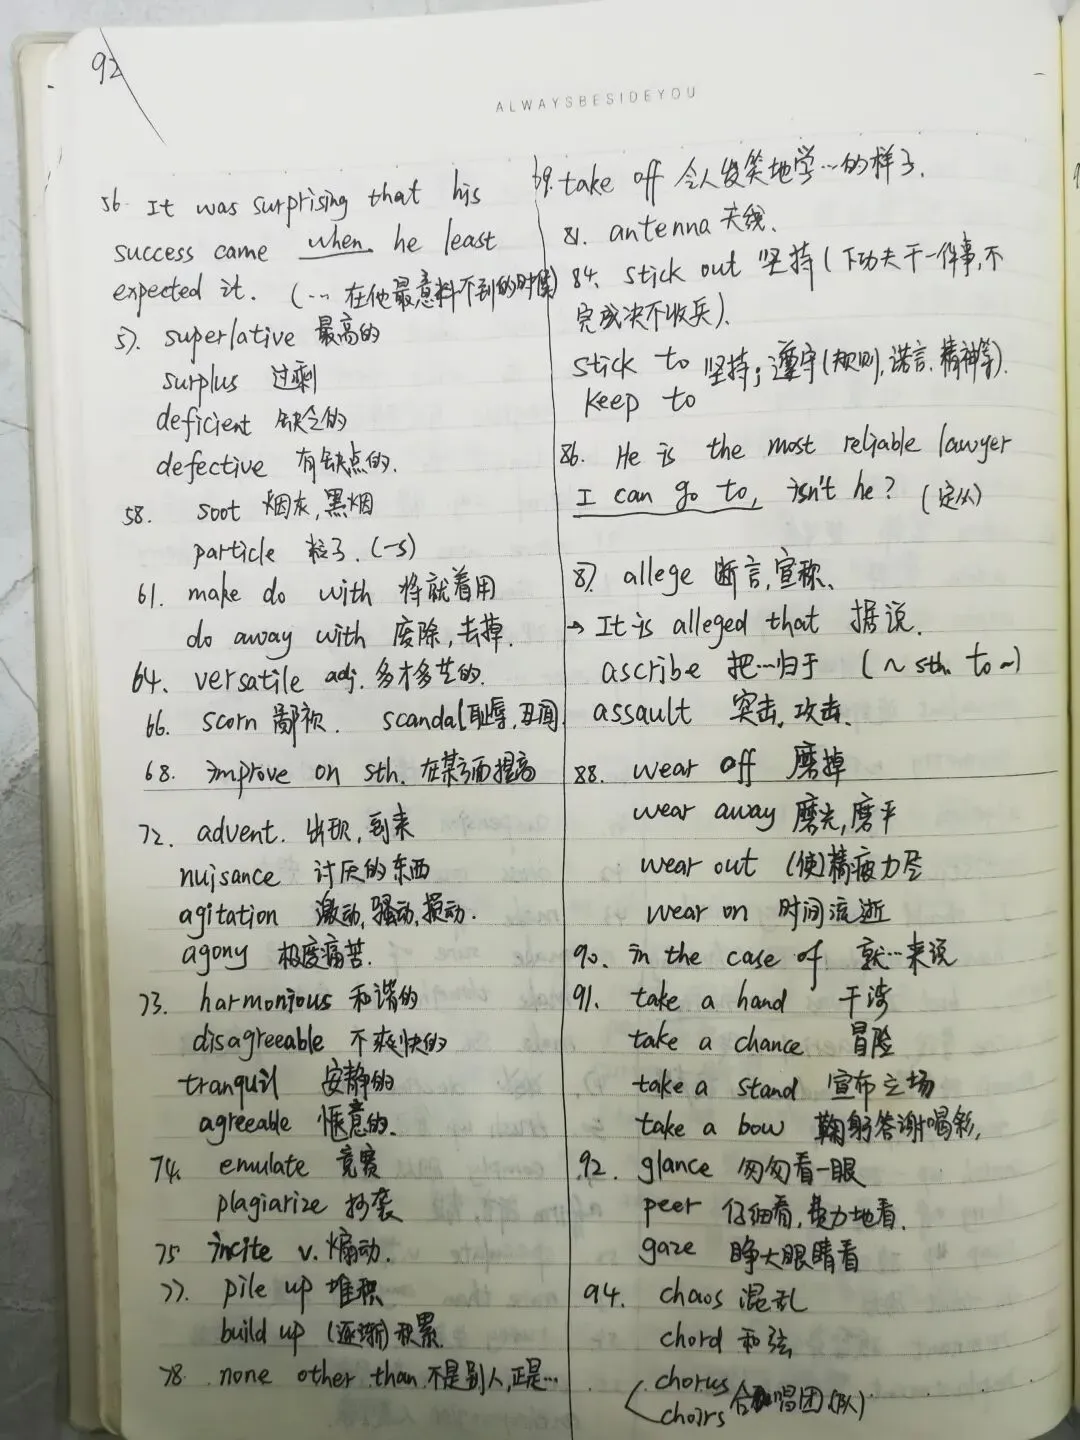 92
ALWAYSBESIDEYOU
56. It was surprising that his
success came when he least
expected it. (… 在他最意料不到的时候)
57. superlative 最高的
surplus 过剩
deficient 缺乏的
defective 有缺点的.
58. soot 烟灰,黑烟
particle 粒子.(-s)
61. make do with 将就着用
do away with 废除,去掉.
64. versatile adj. 多才多艺的.
66. scorn 鄙视. scandal 耻辱,丑闻
68. improve on sth. 在某方面提高
72. advent. 出现,到来
nuisance 讨厌的东西
agitation 激动,骚动,
agony 极度痛苦.
73. harmonious 和谐的
disagreeable 不爽快的
tranquil 安静的
agreeable 惬意的.
74. emulate 竞赛
plagiarize 抄袭
75 incite v. 煽动.
77. pile up 堆积
build up (逐渐)积累.
78. none other than 不是别人,正是…
69. take off 令人发笑地学…的样子.
81. antenna 天线.
84. stick out 坚持(下功夫干一件事,不
完成决不收兵).
stick to 坚持;遵守(规则,诺言.精神等).
keep to
86. He is the most reliable lawyer
I can go to, isn't he? (定从)
87 allege 断言,宣称.
→ It is alleged that 据说.
ascribe 把…归于 (~ sth. to ~)
assault 突击,攻击.
88. wear off 磨掉
wear away 磨光,磨平
wear out (使)精疲力尽
wear on 时间流逝
90. in the case of 就…来说
91. take a hand 干涉
take a chance 冒险
take a stand 宣布立场
take a bow 鞠躬答谢喝彩.
92. glance 匆匆看一眼
peer 仔细看,费力地看.
gaze 睁大眼睛看
94. chaos 混乱
chord 和弦
chorus
choirs 合唱团(队)